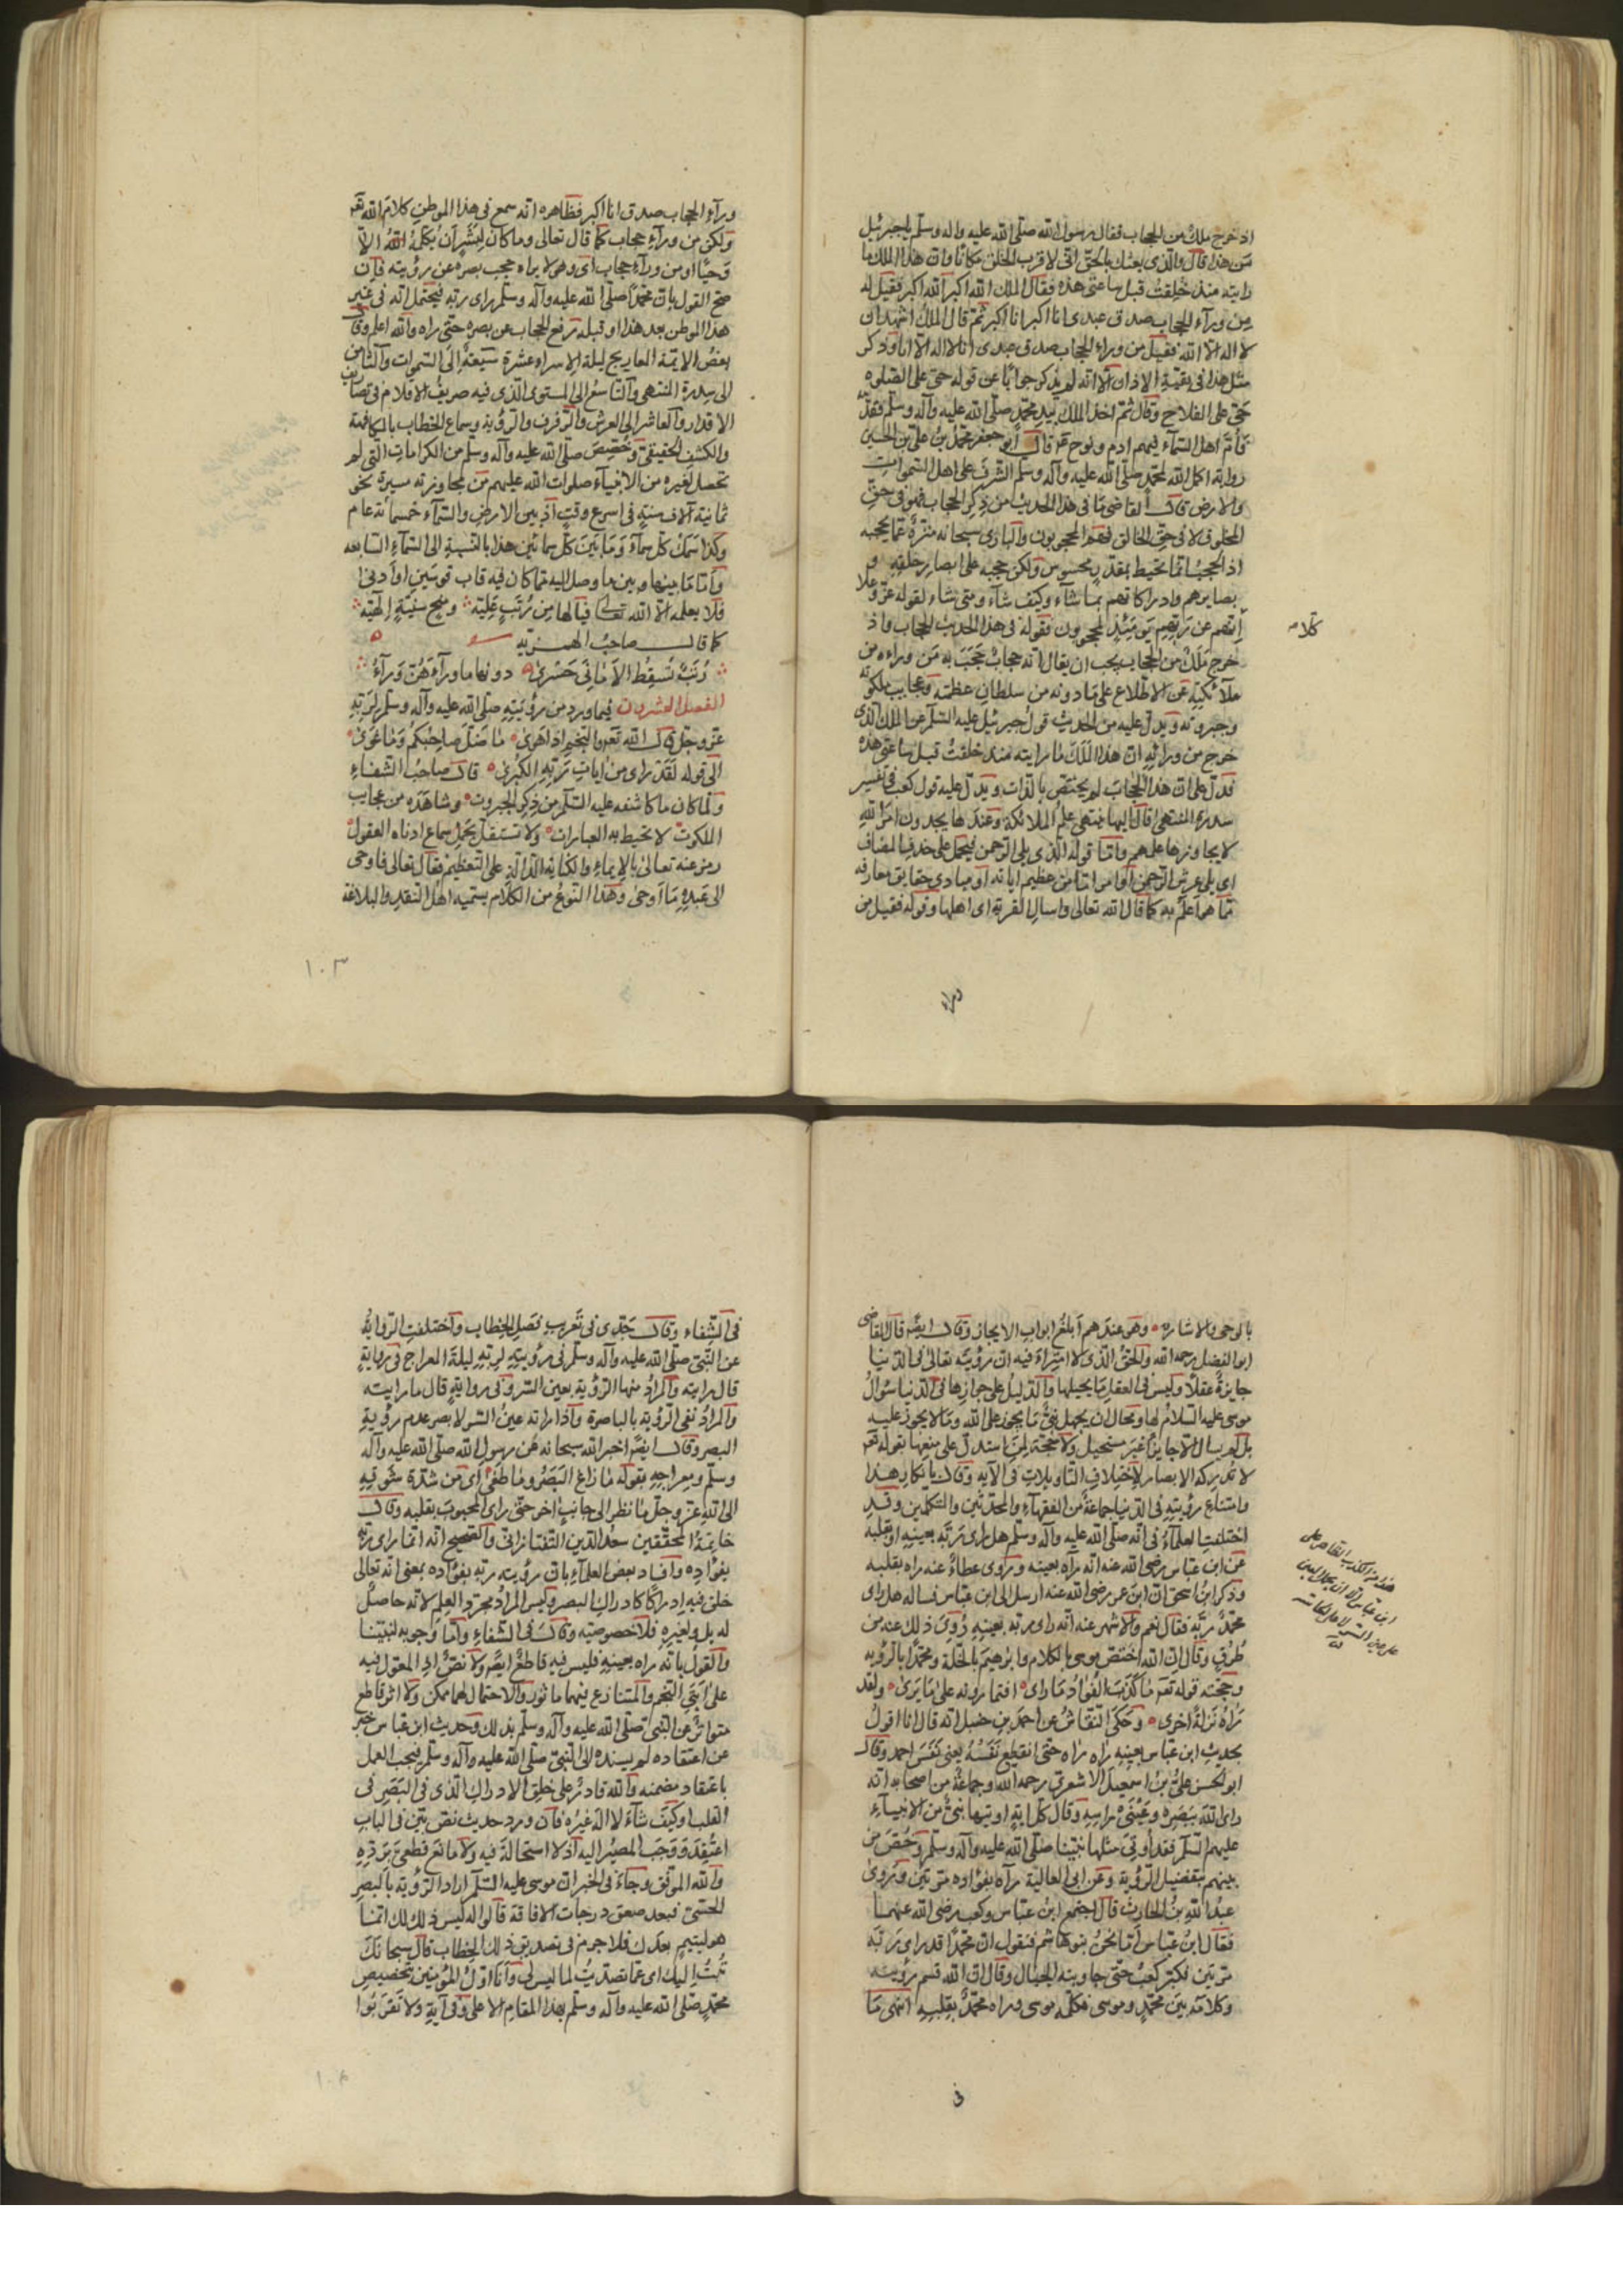 اذ خرج ملك من الحجاب فقال رسول الله صلى الله عليه واله وسلم يا جبرئيل
من هذا قال والذى بعثك بالحق انى لاقرب الخلق مكانا وان هذا الملك ما
رايته منذ خلقت قبل ساعتى هذه فقال الملك الله اكبر الله اكبر فقيل له
من ورآء الحجاب صدق عبدى انا اكبر انا اكبر ثم قال الملك اشهد ان
لا اله الا الله فقيل من وراء الحجاب صدق عبدى انا لا اله الا انا وذكر
مثل هذا فى بقية الاذان الا انه لم يذكر جوابا عن قوله حى على الصلوه
حى على الفلاح وقال ثم اخذ الملك بيد محمد صلى الله عليه وآله وسلم فقدمه
فأم اهل السمآء فيهم ادم ونوح قال ابو جعفر محمد بن على بن الحسين
روايه اكمل الله لمحمد صلى الله عليه وآله وسلم الشرف على اهل السموات
والارض قال القاضى ما فى هذا الحديث من ذكر الحجاب فهو فى حق
المخلوق لا فى حق الخالق فهم المحجوبون والبارى سبحانه منزه عما يحجبه
اذ الحجب انما تحيط بمقدر محسوس ولكن حجبه على ابصار خلقه و
بصايرهم وادراكاتهم بما شآء وكيف شآء ومتى شاء لقوله عز وعلا
كلا انهم عن ربهم يومئذ لمحجوبون فقوله فى هذا الحديث الحجاب واذ
خرج ملك من الحجاب يجب ان يقال انه حجاب حجب به من وراءه من
ملآئكته عن الاطلاع على ما دونه من سلطان عظمته وعجايب ملكوته
وجبروته ويدل عليه من الحديث قول جبرئيل عليه السلم عن الملك الذى
خرج من ورائه ان هذا الملك ما رايته منذ خلقت قبل ساعتى هذه
فدل على ان هذا الحجاب لم يختص بالذات ويدل عليه قول كعب فى تفسير
سدرة المنتهى قال اليها ينتهى علم الملائكة وعندها يجدون امر الله
لا يجاوزها علمهم واما قوله الذى يلى الرحمن فيحمل على حذف المضاف
اى يلى عرش الرحمن او امرا ما من عظيم اياته او مبادى حقايق معارفه
بما هو اعلم به كما قال الله تعالى واسال القرية اى اهلها وقوله فقيل من
ورآء الحجاب صدق انا اكبر فظاهره انه سمع فى هذا الموطن كلام الله تعه
ولكن من ورآء حجاب كما قال تعالى وما كان لبشر ان يكلمه الله الا
وحيا او من ورآء حجاب اى وهو لا يراه حجب بصره عن رؤيته فان
صح القول بان محمدا صلى الله عليه وآله وسلم راى ربه فيحتمل انه فى غير
هذا الموطن بعد هذا او قبله رفع الحجاب عن بصره حتى راه والله اعلم وقال
بعض الائمة المعاريج ليلة الاسراء عشرة سبعة الى السموات والثامن
الى سدرة المنتهى والتاسع الى المستوى الذى فيه صريف الاقلام فى تصاريف
الاقدار والعاشر الى العرش والرفرف والرؤية وسماع الخطاب بالمكافحة
والكشف الحقيقى وخصيص صلى الله عليه وآله وسلم من الكرامات التى لم
تحصل لغيره من الانبيآء صلوات الله عليهم من مجاوزته مسيرة نحو
ثمانية آلاف سنة فى اسرع وقت اذ بين الارض والسمآء خمسمائة عام
وكذا سمك كل سمآء وما بين كل سمائين هذا بالنسبة الى السمآء السابعه
وأما ما بينها وبين ما وصل اليه مما كان فيه قاب قوسين او أدنى
فلا يعلمه الا الله تعالى فيالها من رتب علية ومنح سنية إلهية
كما قال صاحب الهمزيه
رتب تسقط الامانى حسرى دونها ما ورآءهن ورآء
الفصل العشرون فيما ورد من رؤيته صلى الله عليه وآله وسلم لربه
عز وجل قال الله تعه والنجم اذا هوى ما ضل صاحبكم وما غوى
الى قوله لقد راى من ايات ربه الكبرى قال صاحب الشفاء
ولما كان ما كاشفه عليه السلم من ذكر الجبروت وشاهده من عجايب
الملكوت لا تحيط به العبارات ولا تستقل بحمل سماع ادناه العقول
رمز عنه تعالى بالايماء والكنايه الدالة على التعظيم فقال تعالى فاوحى
الى عبده ما اوحى وهذا النوع من الكلام يسميه اهل النقد والبلاغة
١٠٣
بالوحى والاشاره وهو عندهم أبلغ ابواب الايجاز وقال ايضا قال القاضى
ابو الفضل رحمه الله والحق الذى لا امتراء فيه ان رؤيته تعالى فى الدنيا
جايزة عقلا وليس فى العقل ما يحيلها والدليل على جوازها فى الدنيا سؤال
موسى عليه السلام لها ومحال ان يجهل نبى ما يجوز على الله وما لا يجوز عليه
بل لم يسال الا جايزا غير مستحيل ولا حجة لمن استدل على منعها بقوله تعه
لا تدركه الابصار لاختلاف التاويلات فى الآيه وقال بانكار هذا
وامتناع رؤيته فى الدنيا جماعة من الفقهآء والمحدثين والمتكلمين وقد
اختلفت العلمآء فى انه صلى الله عليه وآله وسلم هل راى ربه بعينه او بقلبه
عن ابن عباس رضى الله عنه انه رآه بعينه وروى عطاء عنه راه بقلبه
وذكر ابن اسحق ان ابن عمر رضى الله عنه ارسل الى ابن عباس فساله هل راى
محمد ربه فقال نعم والاشهر عنه انه راى ربه بعينه روى ذلك عنه من
طرق وقال ان الله اختص موسى بالكلام وابرهيم بالخلة ومحمدا بالرؤيه
وحجته قوله تعه ما كذب الفؤاد ما راى افتمارونه على ما يرى ولقد
رآه نزلة اخرى وحكى النقاش عن احمد بن حنبل انه قال انا اقول
بحديث ابن عباس بعينه راه راه حتى انقطع نفسه يعنى نفس احمد وقال
ابو الحسن على بن اسمعيل الاشعرى رحمه الله وجماعة من اصحابه انه
راى الله ببصره وعينى راسه وقال كل اية اوتيها نبى من الانبيآء
عليهم السلم فقد أوتى مثلها نبينا صلى الله عليه وآله وسلم وخص من
بينهم بتفضيل الرؤية وعن ابى العالية رآه بفؤاده مرتين وروى
عبد الله بن الحارث قال اجتمع ابن عباس وكعب رضى الله عنهما
فقال ابن عباس أما نحن بنو هاشم فنقول ان محمدا قد راى ربه
مرتين فكبر كعب حتى جاوبته الجبال وقال ان الله قسم رؤيته
وكلامه بين محمد وموسى فكلمه موسى وراه محمد بقلبه انتهى ما
فى الشفاء وقال جدى فى تعريب فصل الخطاب واختلفت الرواية
عن النبى صلى الله عليه وآله وسلم فى رؤيته لربه ليلة المعراج فى رواية
قال رايته والمراد منها الرؤية بعين السر وفى رواية قال ما رايته
والمراد نفى الرؤية بالباصرة واذا راته عين السر لا يضر عدم رؤية
البصر وقال ايضا اخبر الله سبحانه عن رسول الله صلى الله عليه وآله
وسلم ومعراجه بقوله ما زاغ البصر وما طغى اى من شدة شوقه
الى الله عز وجل ما نظر الى جانب اخر حتى راى المحبوب بقلبه وقال
خاتمة المحققين سعد الدين التفتازانى والصحيح انه انما راى ربه
بفؤاده وافاد بعض العلمآء بان رؤيته ربه بفؤاده بمعنى انه تعالى
خلق فيه ادراكا كادراك البصر وليس المراد مجرد العلم لانه حاصل
له بل ولغيره فلا خصوصيه وقال فى الشفاء واما وجوبه لنبينا
والقول بانه راه بعينه فليس فيه قاطع ايضا ولا نص اذ المعول فيه
على آيتى النجم والتنازع فيهما ماثور والاحتمال لهما ممكن ولا اثر قاطع
متواتر عن النبى صلى الله عليه وآله وسلم بذلك وحديث ابن عباس خبر
عن اعتقاده لم يسنده الى النبى صلى الله عليه وآله وسلم فيجب العمل
باعتقاد مضمنه والله قادر على خلق الادراك الذى فى البصر فى
القلب او كيف شآء لا اله غيره فان ورد حديث نص بين فى الباب
اعتقد ووجب المصير اليه اذ لا استحالة فيه ولا مانع قطعى يرده
والله الموفق وجاء فى الخبر ان موسى عليه السلم اراد الرؤية بالبصر
الحسى فبعد صعق درجات الافاقة قالوا له ليس ذلك لك انما
هو ليتيم بعدك فلا جرم فى تصديق ذلك الخطاب قال سبحانك
تبت اليك اى عما تصديت لما ليس لى وأنا اول المؤمنين بتخصيص
محمد صلى الله عليه وآله وسلم بهذا المقام الاعلى وفى آية ولا تقربوا
١٠٤